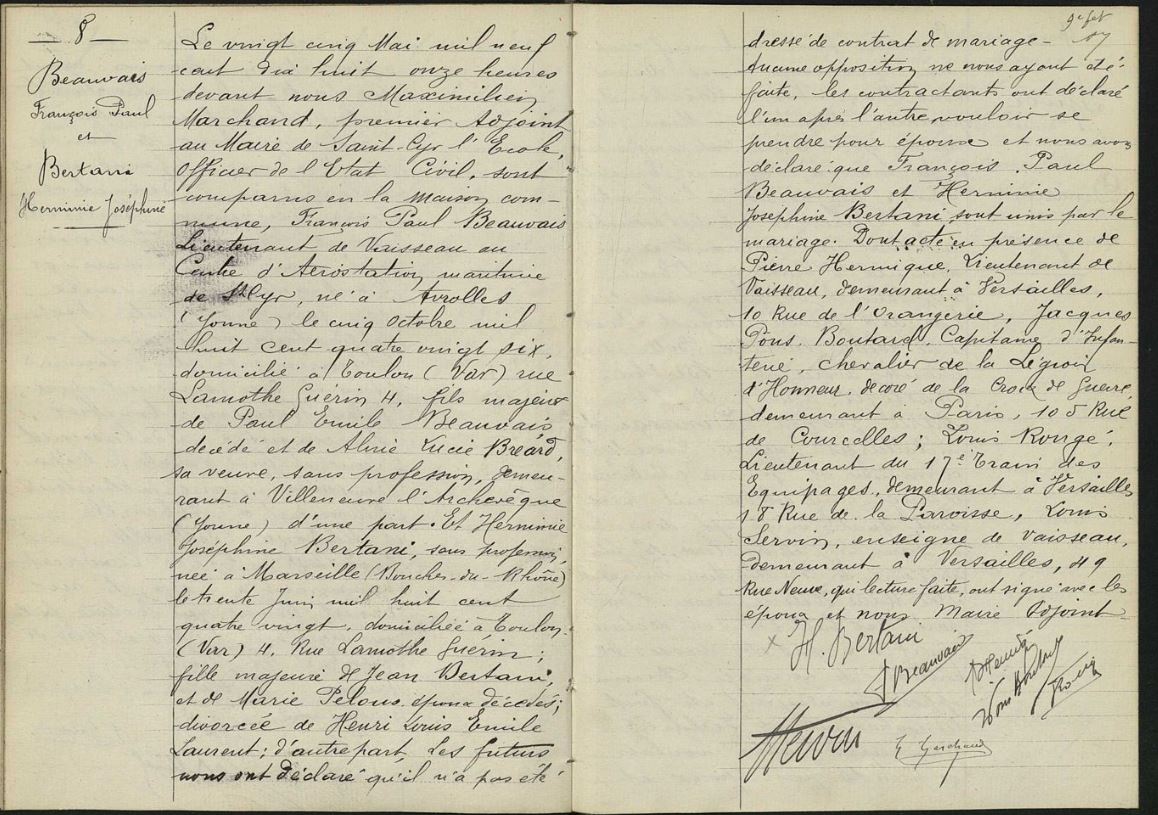 8
Beauvais
François Paul
et
Bertani
Herminie Joséphine
Le vingt cinq Mai mil neuf
cent dix huit onze heures
devant nous Maximilien
Marchand, premier Adjoint
au Maire de Saint-Cyr l'Ecole,
Officier de l'Etat Civil, sont
comparus en la maison com-
mune, François Paul Beauvais
Lieutenant de Vaisseau au
Centre d'Aérostation maritime
de St Cyr, né à Avrolles
(Yonne) le cinq Octobre mil
huit cent quatre vingt six,
domicilié à Toulon (Var) rue
Lamothe Guérin 4, fils majeur
de Paul Emile Beauvais
décédé et de Aline Lucie Bréard,
sa veuve, sans profession, demeu-
rant à Villeneuve l'Archevêque
(Yonne) d'une part. Et Herminie
Joséphine Bertani, sans profession,
née à Marseille (Bouches-du-Rhône)
le trente Juin mil huit cent
quatre vingt, domiciliée à Toulon
(Var) 4, Rue Lamothe Guérin;
fille majeure de Jean Bertani,
et de Marie Pelous, époux décédés;
divorcée de Henri Louis Emile
Laurent; d'autre part, Les futurs
nous ont déclaré qu'il n'a pas été
9e fet
dressé de contrat de mariage-
Aucune opposition ne nous ayant été
faite, les contractants ont déclaré
l'un après l'autre vouloir se
prendre pour époux et nous avons
déclaré que François Paul
Beauvais et Herminie
Joséphine Bertani sont unis par le
mariage. Dont acte en présence de
Pierre Hennique, Lieutenant de
Vaisseau, demeurant à Versailles,
10 Rue de l'Orangerie, Jacques
Pons Boutard, Capitaine d'Infan-
terie, chevalier de la Légion
d'Honneur, décoré de la Croix de Guerre,
demeurant à Paris, 105 Rue
de Courcelles; Louis Rougé,
Lieutenant du 17e Train des
Equipages, demeurant à Versailles
18 Rue de la Paroisse, Louis
Servin, enseigne de vaisseau,
demeurant à Versailles, 49
Rue Neuve, qui lecture faite, ont signé avec les
époux et nous Maire Adjoint
H. Bertani
Beauvais
Servin